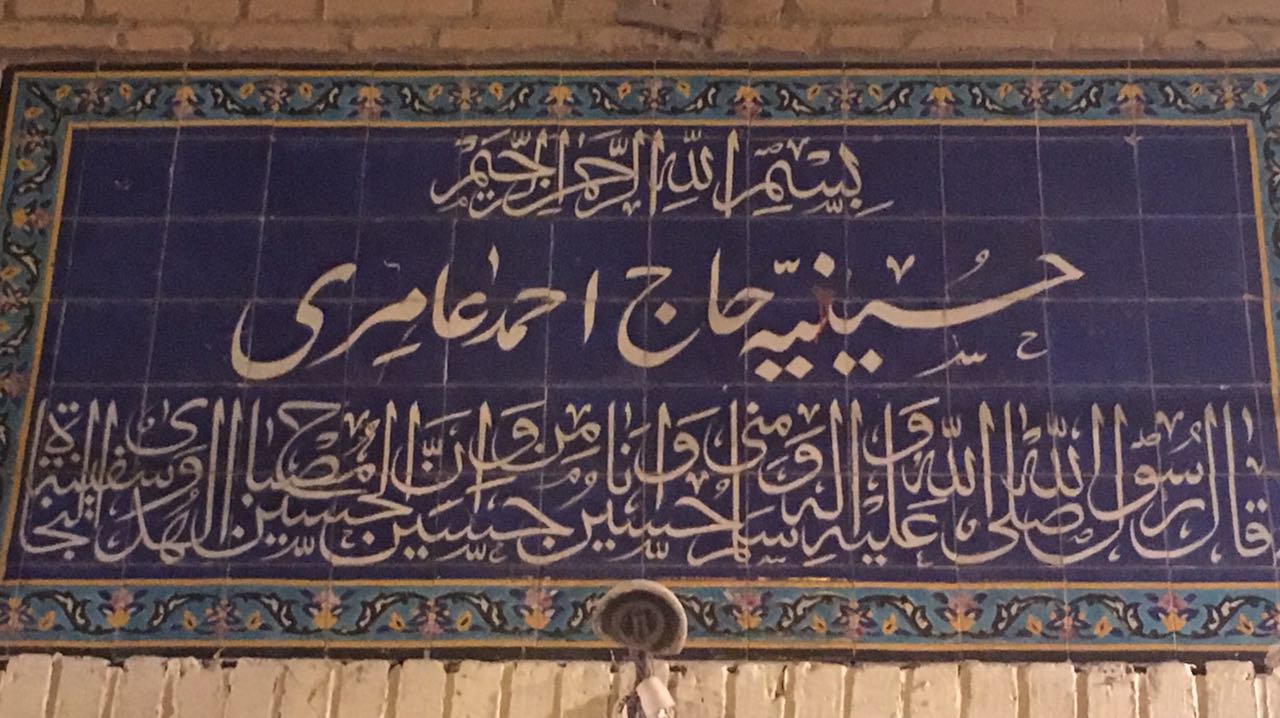 بِسْمِ اللهِ الرَّحْمٰنِ الرَّحِیْمِ
حُسینیّه حاج احمد عامِری
قال رسول الله صلی الله علیه و آله و سلم حسین منی و انا من حسین و ان الحسین مصباح الهدی و سفینة النجاة